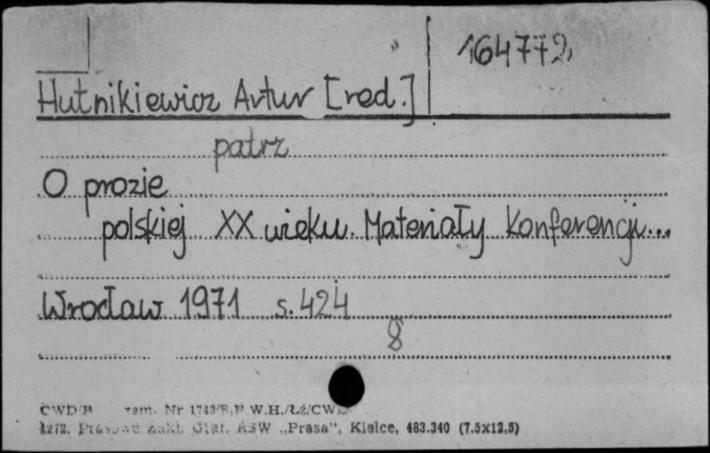 164779
Hutnikiewicz Artur [red.]
patrz
O prozie
polskiej XX wieku. Materiały Konferencji...
Wrocław 1971 s. 424
8
CWD/B zam. Nr W.H./ŁŻ/CWD
Zakł. Graf. RSW „Prasa", Kielce, 483.340 (7.5x12,5)